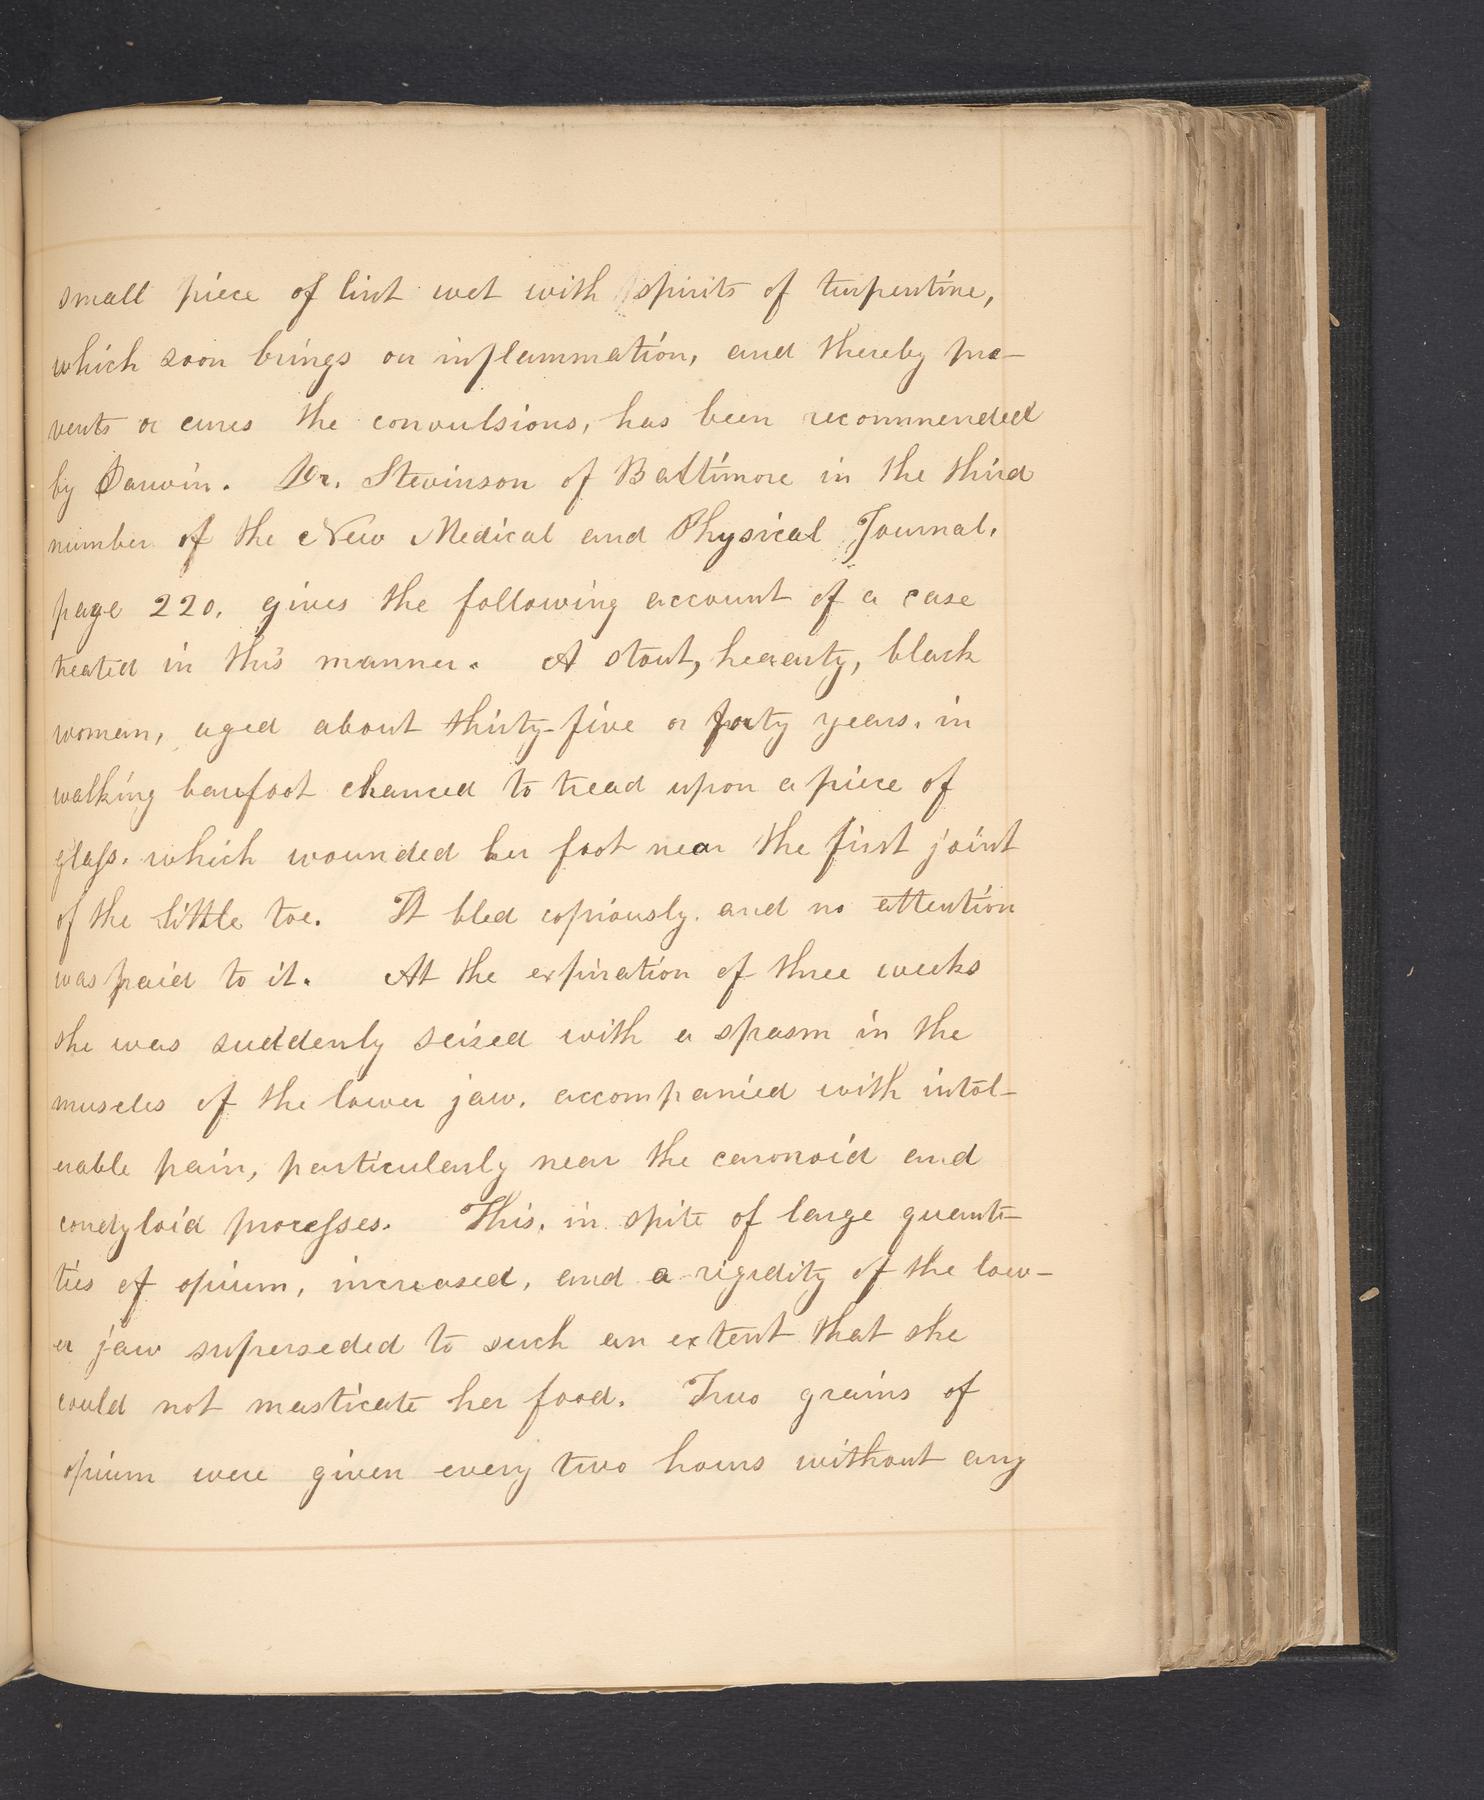 small piece of lint wet with spirits of turpentine,
which soon brings on inflammation, and thereby pre-
vents or cures the convulsions, has been recommended
by Darwin. Dr. Stevinson of Baltimore in the third
number of the New Medical and Physical Journal.
page 220. gives the following account of a case
treated in this manner. A stout, hearty, black
woman, aged about thirty-five or forty years. in
walking barefoot chanced to tread upon a piece of
glass. which wounded her foot near the first joint
of the little toe. It bled copiously. and no attention
was paid to it. At the expiration of three weeks
she was suddenly seized with a spasm in the
muscles of the lower jaw. accompanied with intol-
erable pain, particularly near the coronoid and
condyloid processes. This. in spite of large quanti-
ties of opium, increased, and a rigidity of the low-
er jaw superseded to such an extent that she
could not masticate her food. Two grains of
opium were given every two hours without any